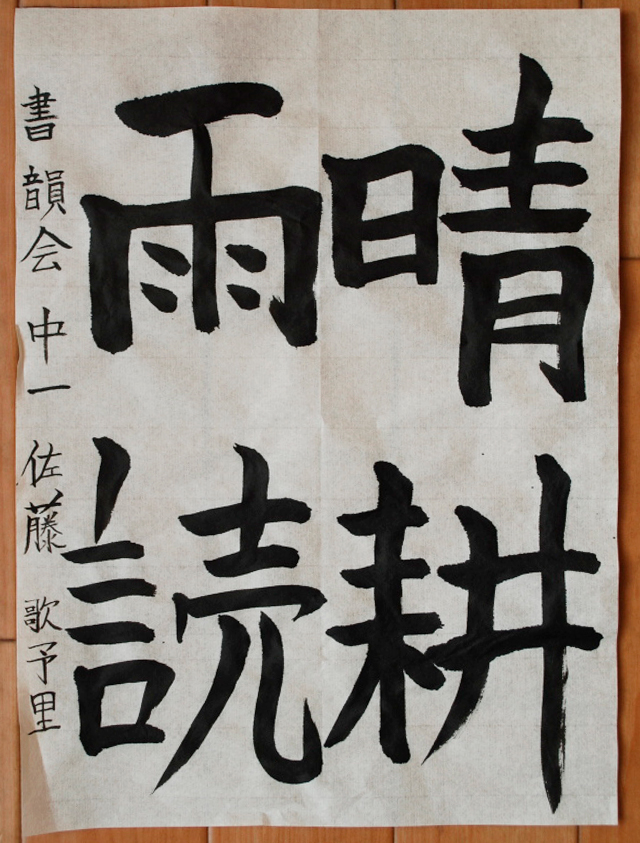 晴耕
雨読
書韻会 中一 佐藤 歌予里